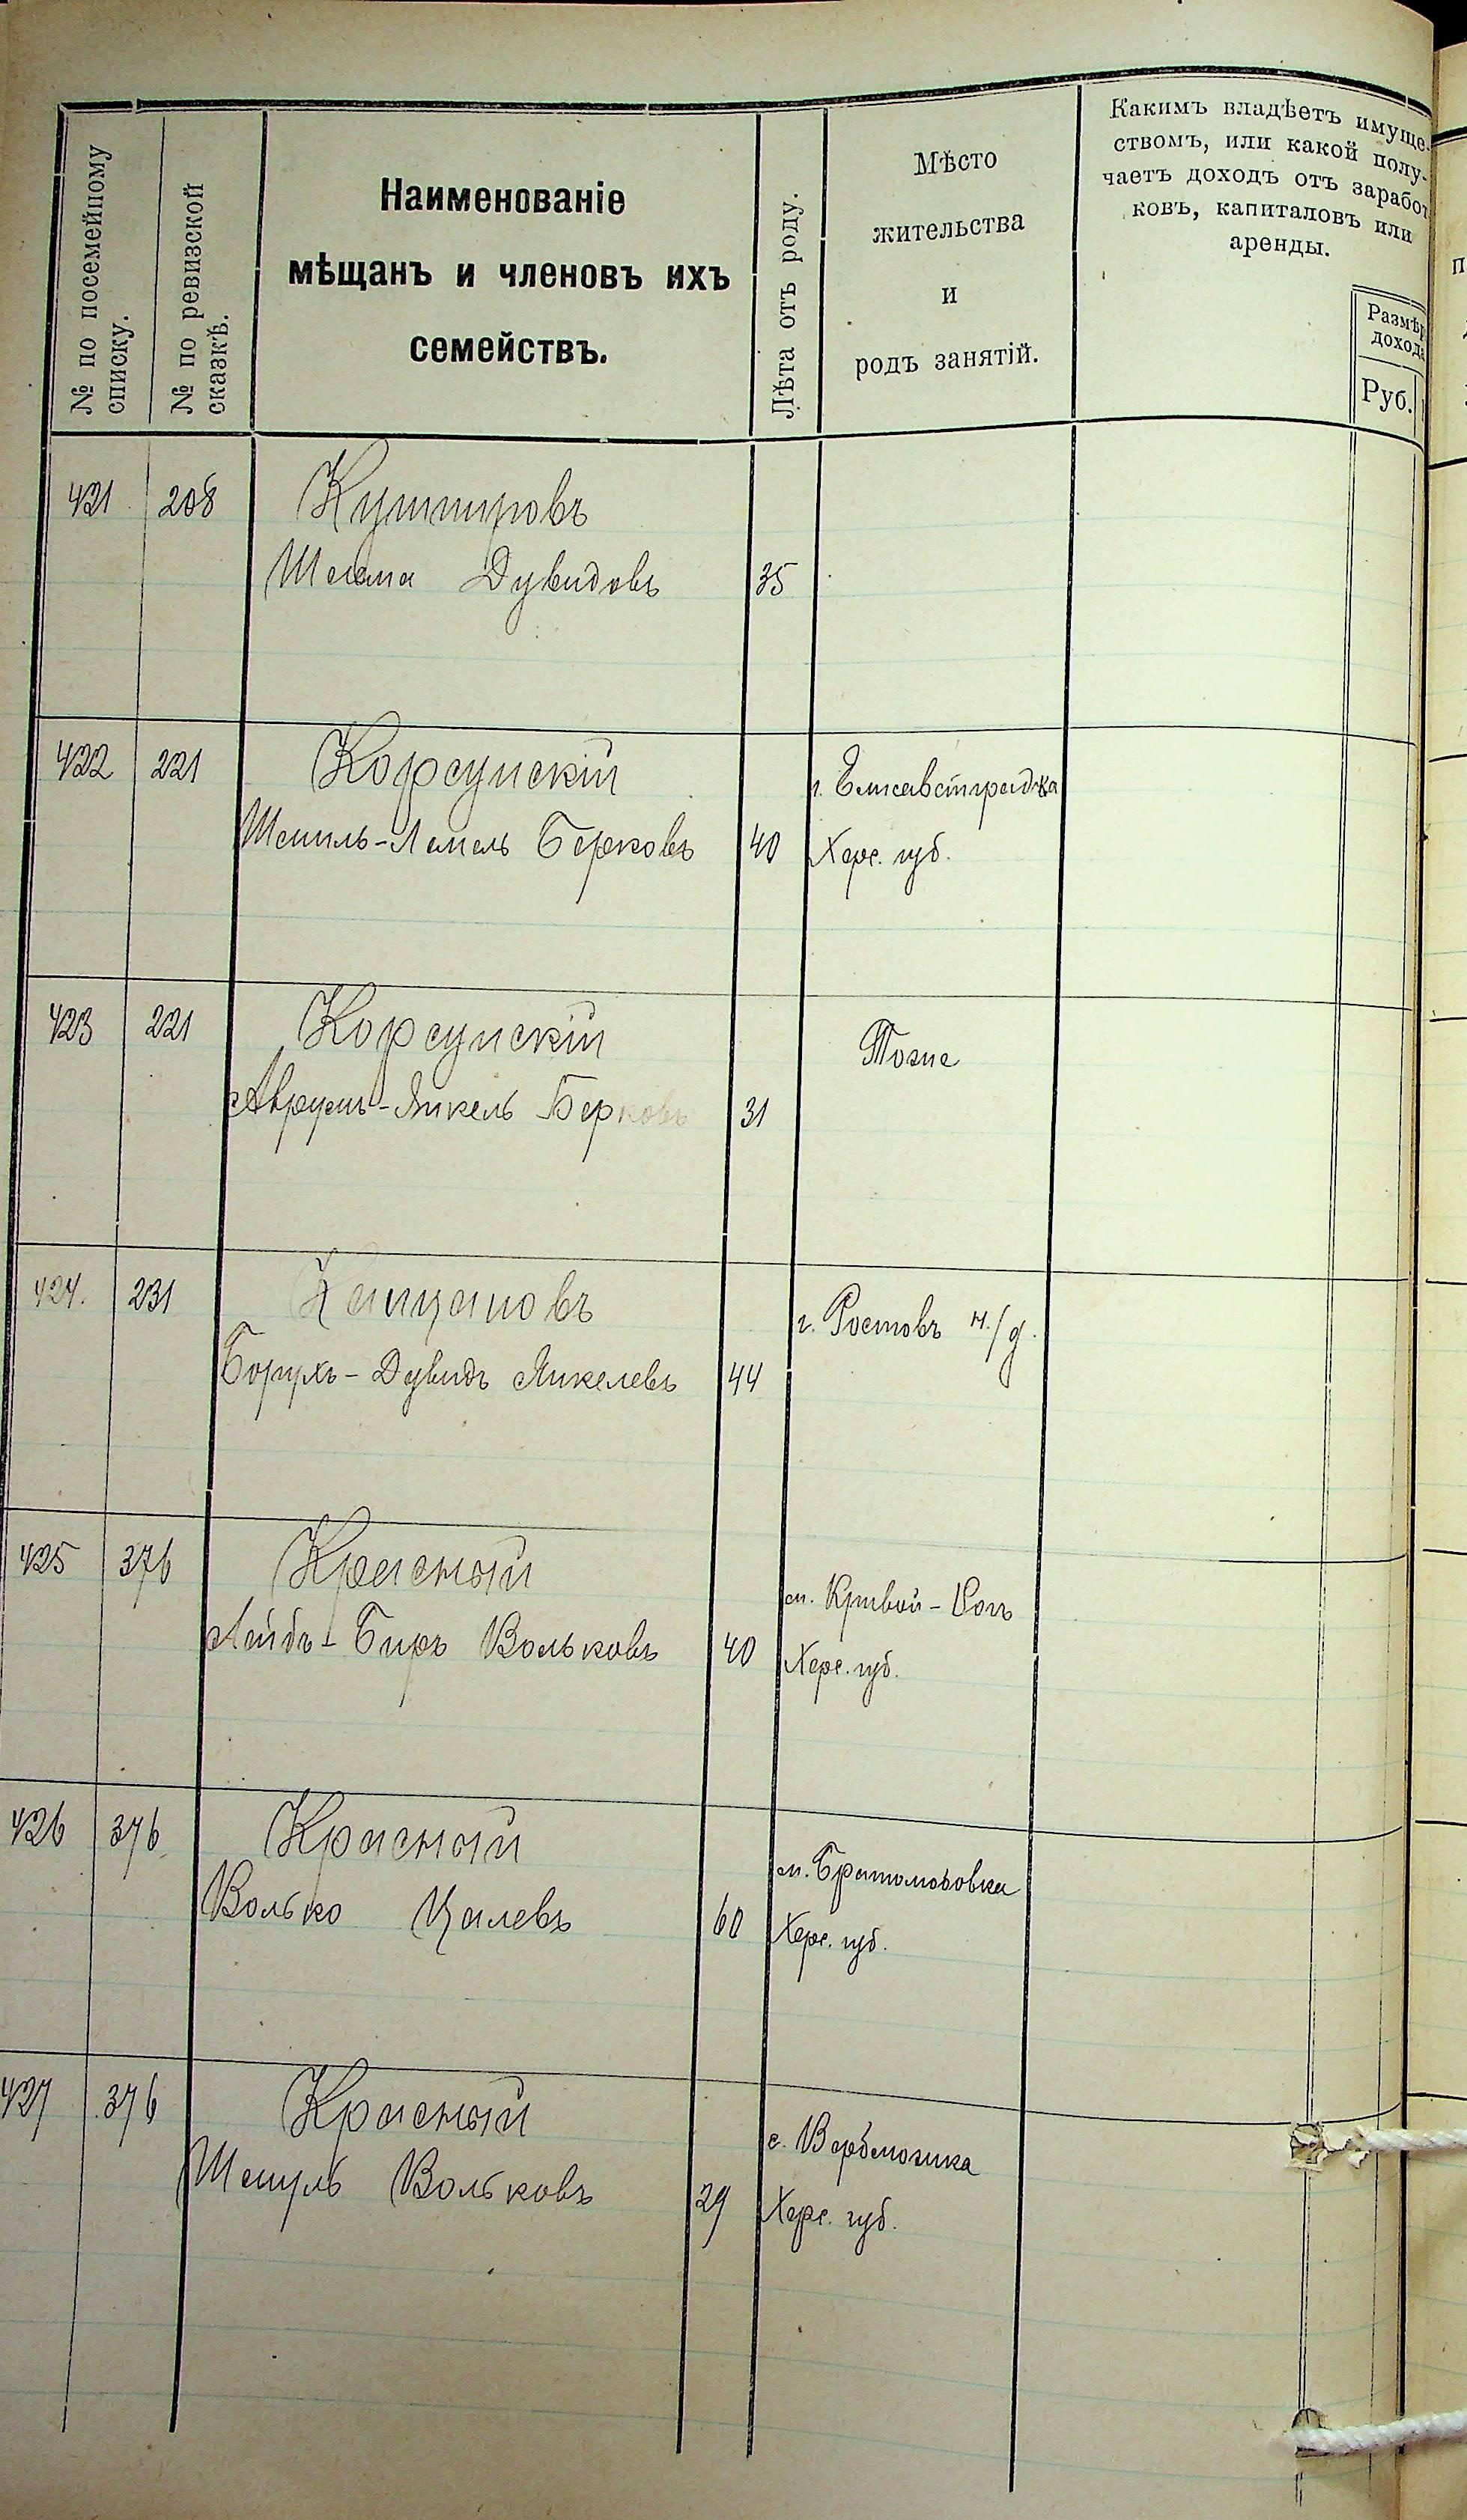 № по посемейному
списку.
№ по ревизской
сказкѣ.
Наименованіе
мѣщанъ и членовъ ихъ
семействъ.
Лѣта отъ роду.
Мѣсто
жительства
и
родъ занятій.
Какимъ владѣетъ имуще-
ствомъ, или какой полу-
чаетъ доходъ отъ заработ
ковъ, капиталовъ или
аренды.
Размѣр
дохода
Руб.
421 208 Кушнировъ
Дувидовъ 35
422 221 Корсунскій г. Елисаветградка
Шмиль-Лемель Берковъ 40 Херс. губ.
423 221 Корсунскій Тогже
Аврумъ-Янкель Берковъ 31
424. 231 Канцановъ г. Ростовъ н./д.
Борухъ-Дувидъ Янкелевъ 44
425 376 Красный м. Кривой-Рогъ
Лейбъ-Биръ Вольковъ 40 Херс. губ.
426 376 Красный м.
Волько Цалевъ 60 Херс. губ.
427 376 Красный с. Верблюжка
Шмуль Вольковъ 29 Херс. губ.